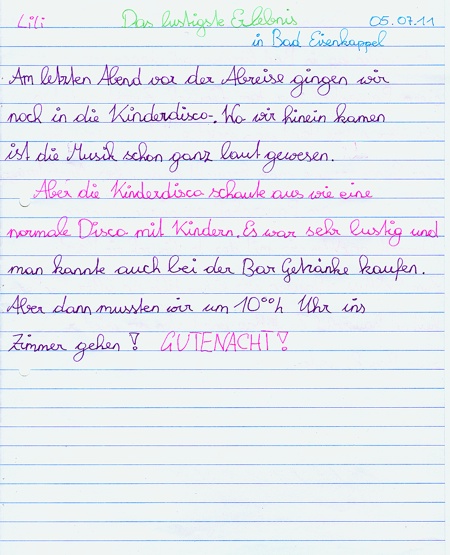 Lili Das lustigste Erlebnis 05.07.11
in Bad Eisenkappel
Am letzten Abend vor der Abreise gingen wir
noch in die Kinderdisco. Wo wir hinein kamen
ist die Musik schon ganz laut gewesen.
Aber die Kinderdisco schaute aus wie eine
normale Disco mit Kindern. Es war sehr lustig und
man konnte auch bei der Bar Getränke kaufen.
Aber dann mussten wir um 10ºº h Uhr ins
Zimmer gehen! GUTENACHT!